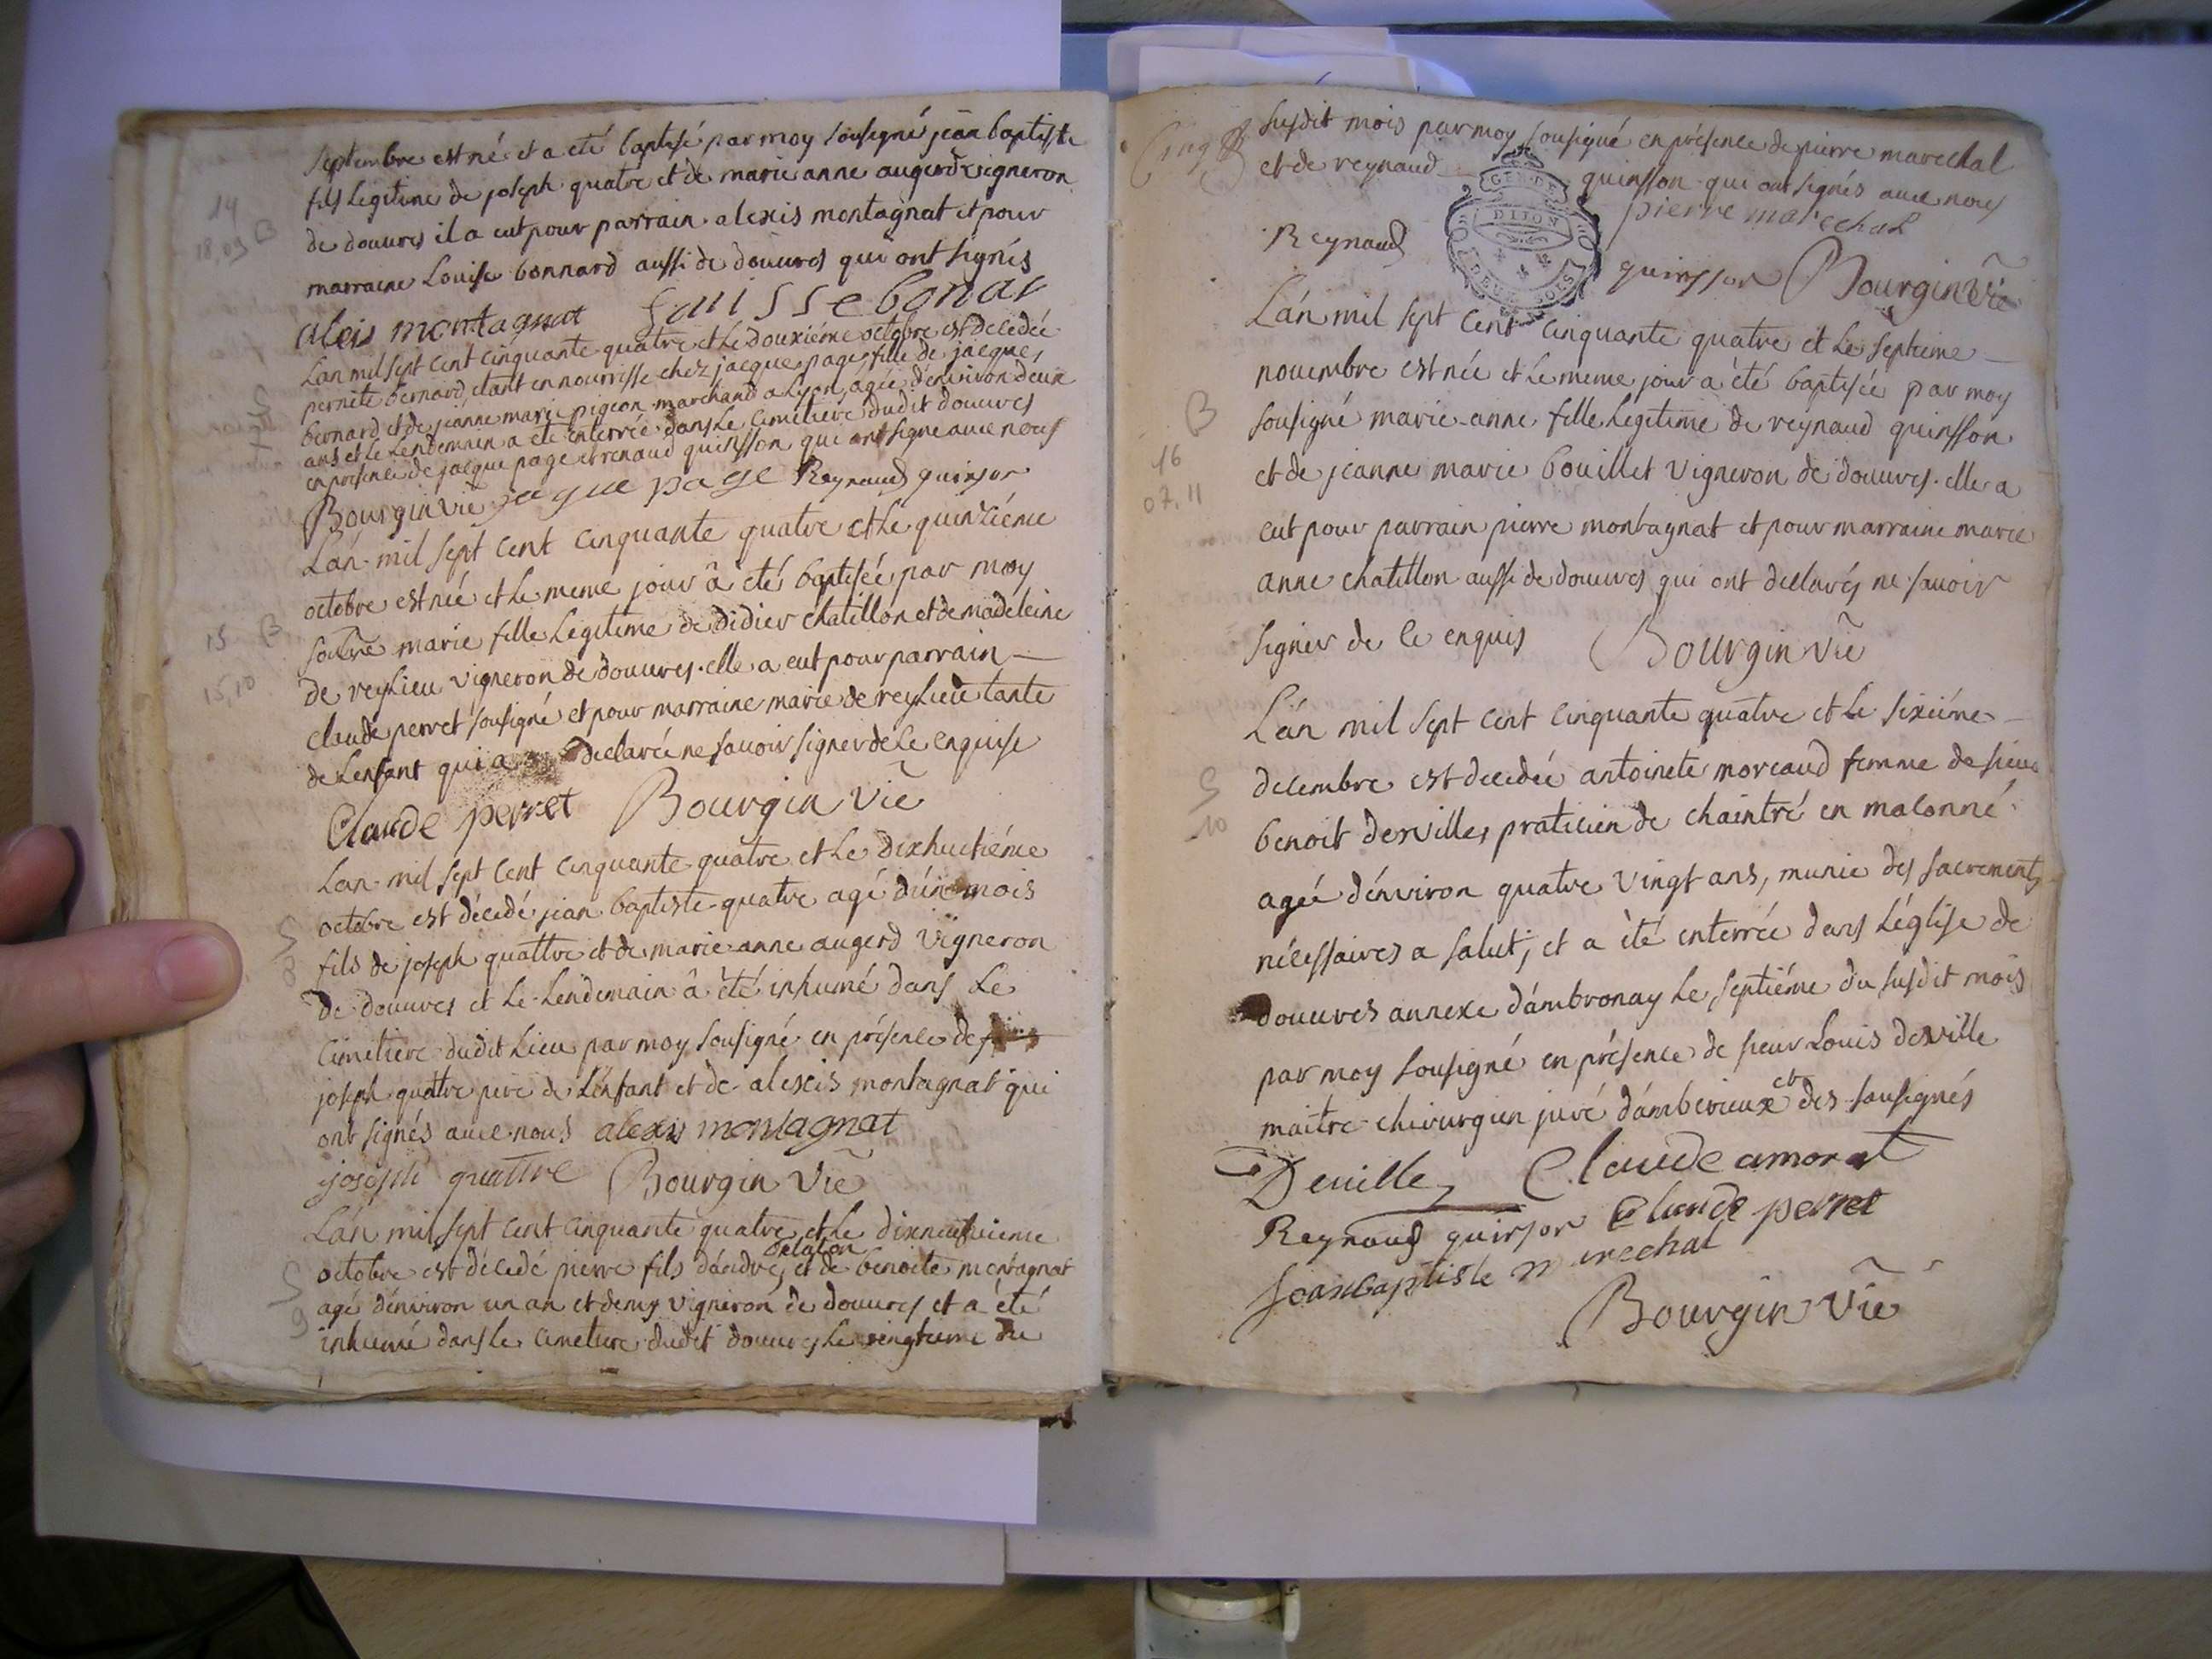 septembre est né et a eté baptisé par moy sousigné jean baptiste
fils legitime de joseph quatre et de marie anne augerd vigneron
de douvres il a eut pour parrain alexis montagnat et pour
marraine Louise bonnard aussi de douvres qui ont signés
14
18,09 B
aleis montagnat Louisse bonar
Lan mil sept cent cinquante quatre et le douxiéme octobre est decedée
pernete bernard, etant en nourrisse chez jacque page, fille de jacque,
bernard et de jeanne marie pigeon marchand a Lyon, agée d'environ deux
ans et le lendemain a eté enterrée dans le cimetiere dudit douvres
en presence de jacque page et renaud quinsson qui ont signé avec nous
S
7
Bourgin vic̃ jaque page Reynaud quinson
L'an mil sept cent cinquante quatre et le quinziéme
octobre est née et le meme jour â eté baptisée par moy
sous̃né marie fille legitime de didier chatillon et de madeleine
de reylieu vigneron de douvres. elle a eut pour parrain
claude perret sousigné et pour marraine marie de reylieu tante
de lenfant qui a declarée ne savoir signer de ce enquise
15 B
15,10
Claude perret Bourgin vic̃
Lan mil sept cent cinquante quatre et le dixhuitiéme
octobre est décedé jean baptiste quatre agé d'un mois
fils de joseph quattre et de marie anne augerd vigneron
de douvres et le lendemain â été inhumé dans le
cimetiere dudit lieu par moy sousigné en présence de
joseph quatre pere de l'enfant et de alexis montagnat qui
ont signés avec nous alexis montagnat
S
8
joseph quattre Bourgin vic̃
Lan mil sept cent cinquante quatre et le dixneuvieme
octobre est décedé pierre fils d'andré, et de benoite montagnat
agé d'environ un an et demy vigneron de douvres et a été
inhumé dans le cimetiere dudit douvres le vingtieme du
S
9
Cinq
susdit mois par moy sousigné en présence de pierre marechal
et de reynaud quinsson qui ont signés avec nous
GEN. DE DIJON
DEUX SOLS
pierre marechal
Reynaud quinsson Bourgin vic̃
L'an mil sept cent cinquante quatre et le septieme
novembre est née et le meme jour a été baptisée par moy
sousigné marie-anne fille legitime de reynaud quinsson
et de jeanne marie bouillet vigneron de douvres. elle a
eut pour parrain pierre montagnat et pour marraine marie
anne chatillon aussi de douvres qui ont declarés ne savoir
signer de ce enquis Bourgin vic̃
B
16
07,11
L'an mil sept cent cinquante quatre et le sixiéme
decembre est decedée antoinete moreaud femme de sieur
benoit derville, praticien de chaintré en maconné
agée d'environ quatre vingt ans, munie des sacrements
nécessaires a salut; et a été enterrée dans l'église de
douvres annexe d'ambronay le septiéme du susdit mois
par moy sousigné en présence de sieur Louis deville
maitre chirurgien juré d'amberieux et des sousignés
S
10
Deville Claude amorat
Reynaud quinsor Claude perret
Jean baptiste marechal
Bourgin vic̃